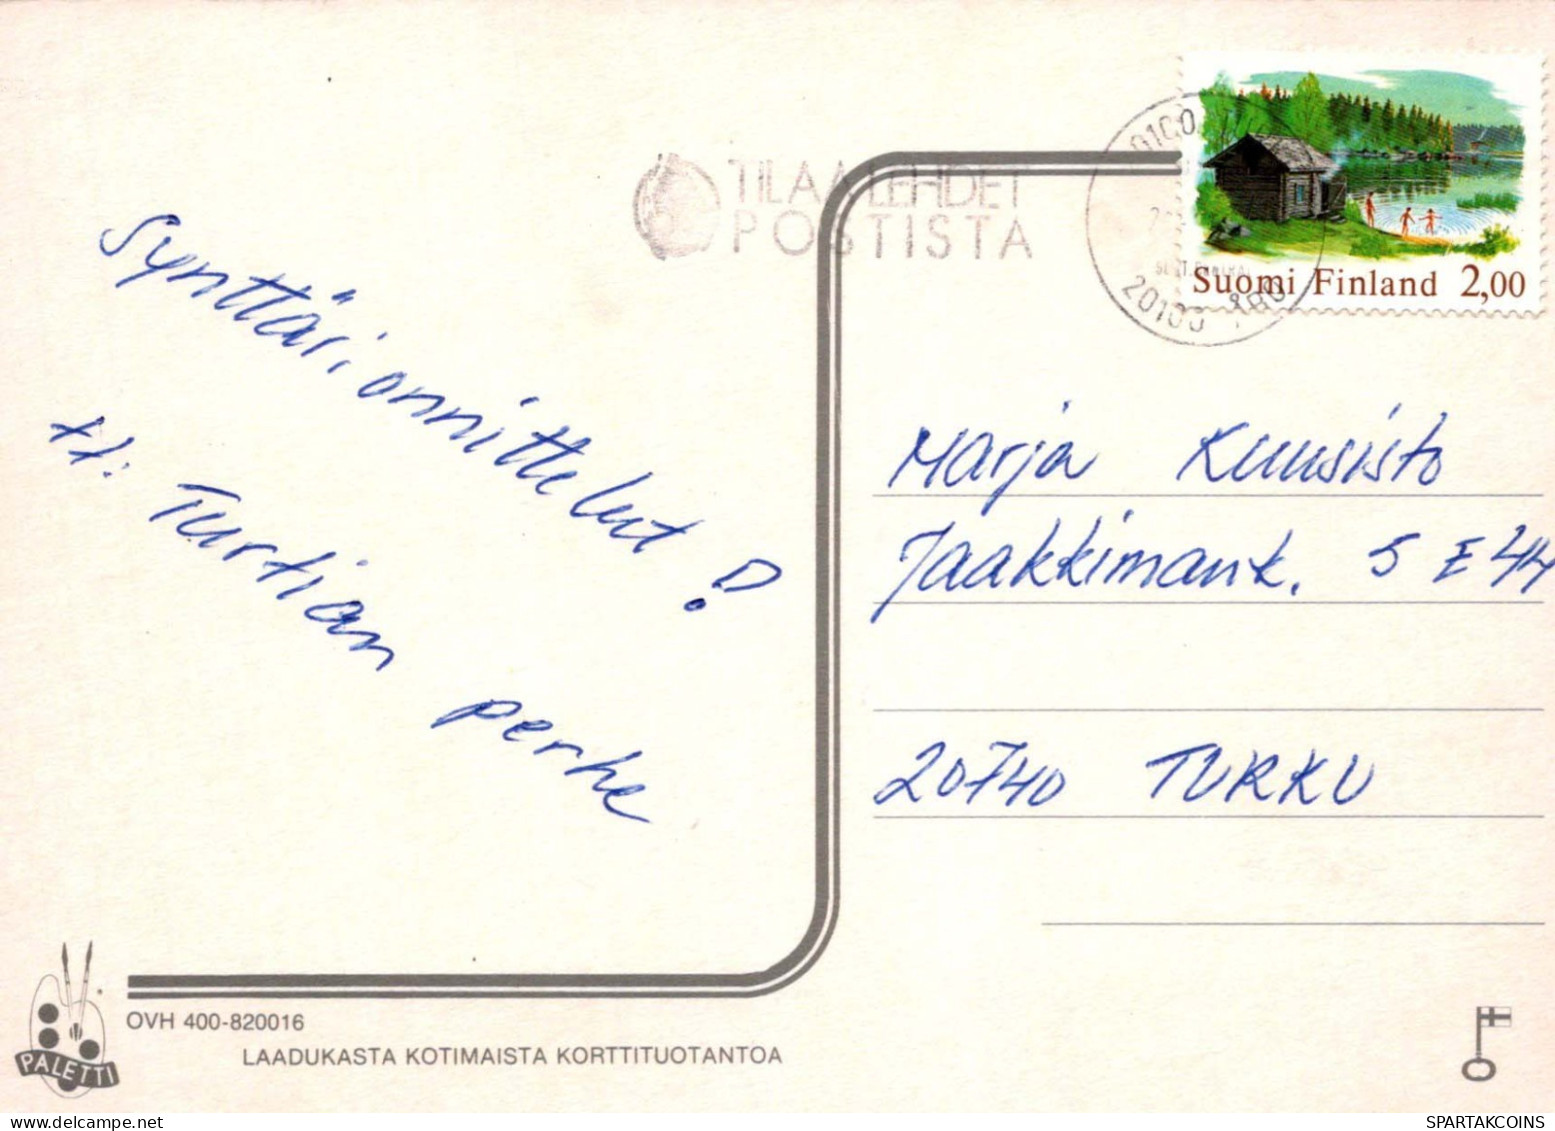 TILAA LEHDET
POSTISTA
Suomi Finland 2,00
20100
Synttäri onnittelut!
t: Turtian perhe
Marja Kuusisto
Jaakkimank. 5 E 44
20740 TURKU
PALETTI
OVH 400-820016
LAADUKASTA KOTIMAISTA KORTTITUOTANTOA
https://www.delcampe.net
SPARTAKCOINS